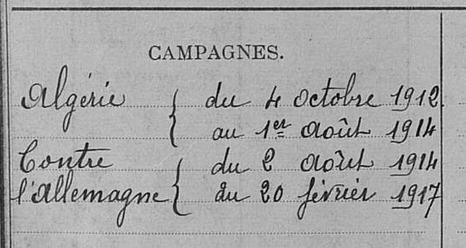 CAMPAGNES.
Algérie { du 4 octobre 1912
au 1er Août 1914
Contre { du 2 Août 1914
l'Allemagne au 20 février 1917